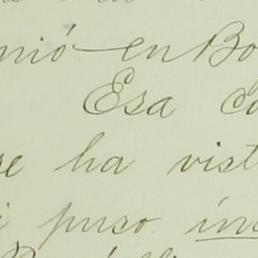 nió en Bo
Esa c
se ha vist
puso in